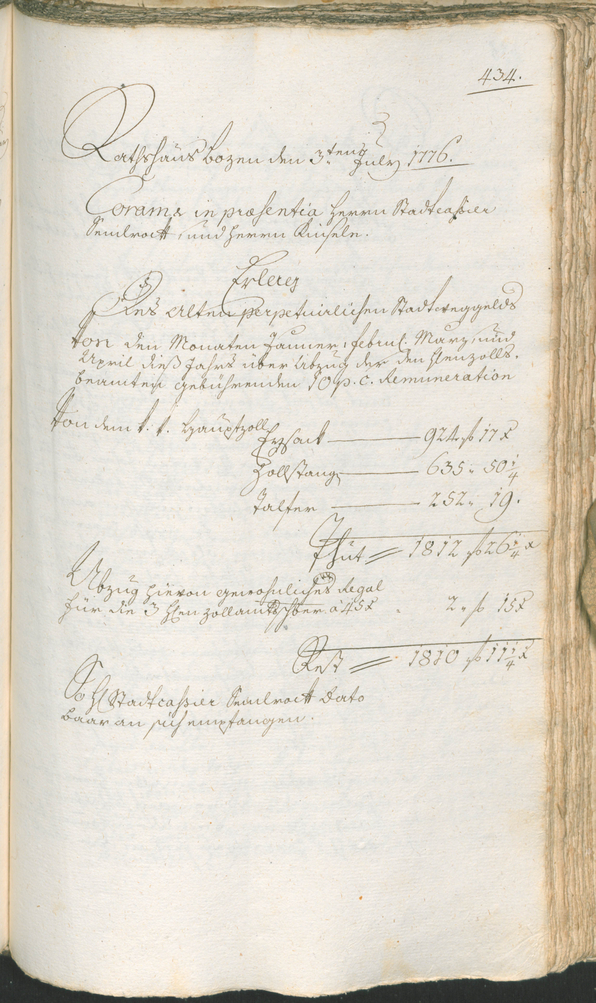 434.
Rathshaus Bozen den 3.ten July 1776.
Coram & in præsentia Herrn Stadtcassier
Semlrock, und Herrn Kinsele.
Erlag
Des alten perpetuirlichen Stadtweggelds
von den Monaten Jänner, Febru. Marz, und
April dieß Jahrs über Abzug der den Herrn Zolls-
beamten gebührenden 10 p. c. Remuneration
Von dem k. k. Hauptzoll
Eysack — 924 f 17 x
Zollstang — 635 " 50 1/4
Talfer — 252 " 19.
Thut = 1812 f 26 1/4 x
Abzug hievon gewohnliches Regal
für die 3 Herrn Zollamts a 45 x " 2 " f 15 x
Rest = 1810 f 11 1/4 x
So H Stadtcassier Semlrock Dato
baar an sich empfangen.